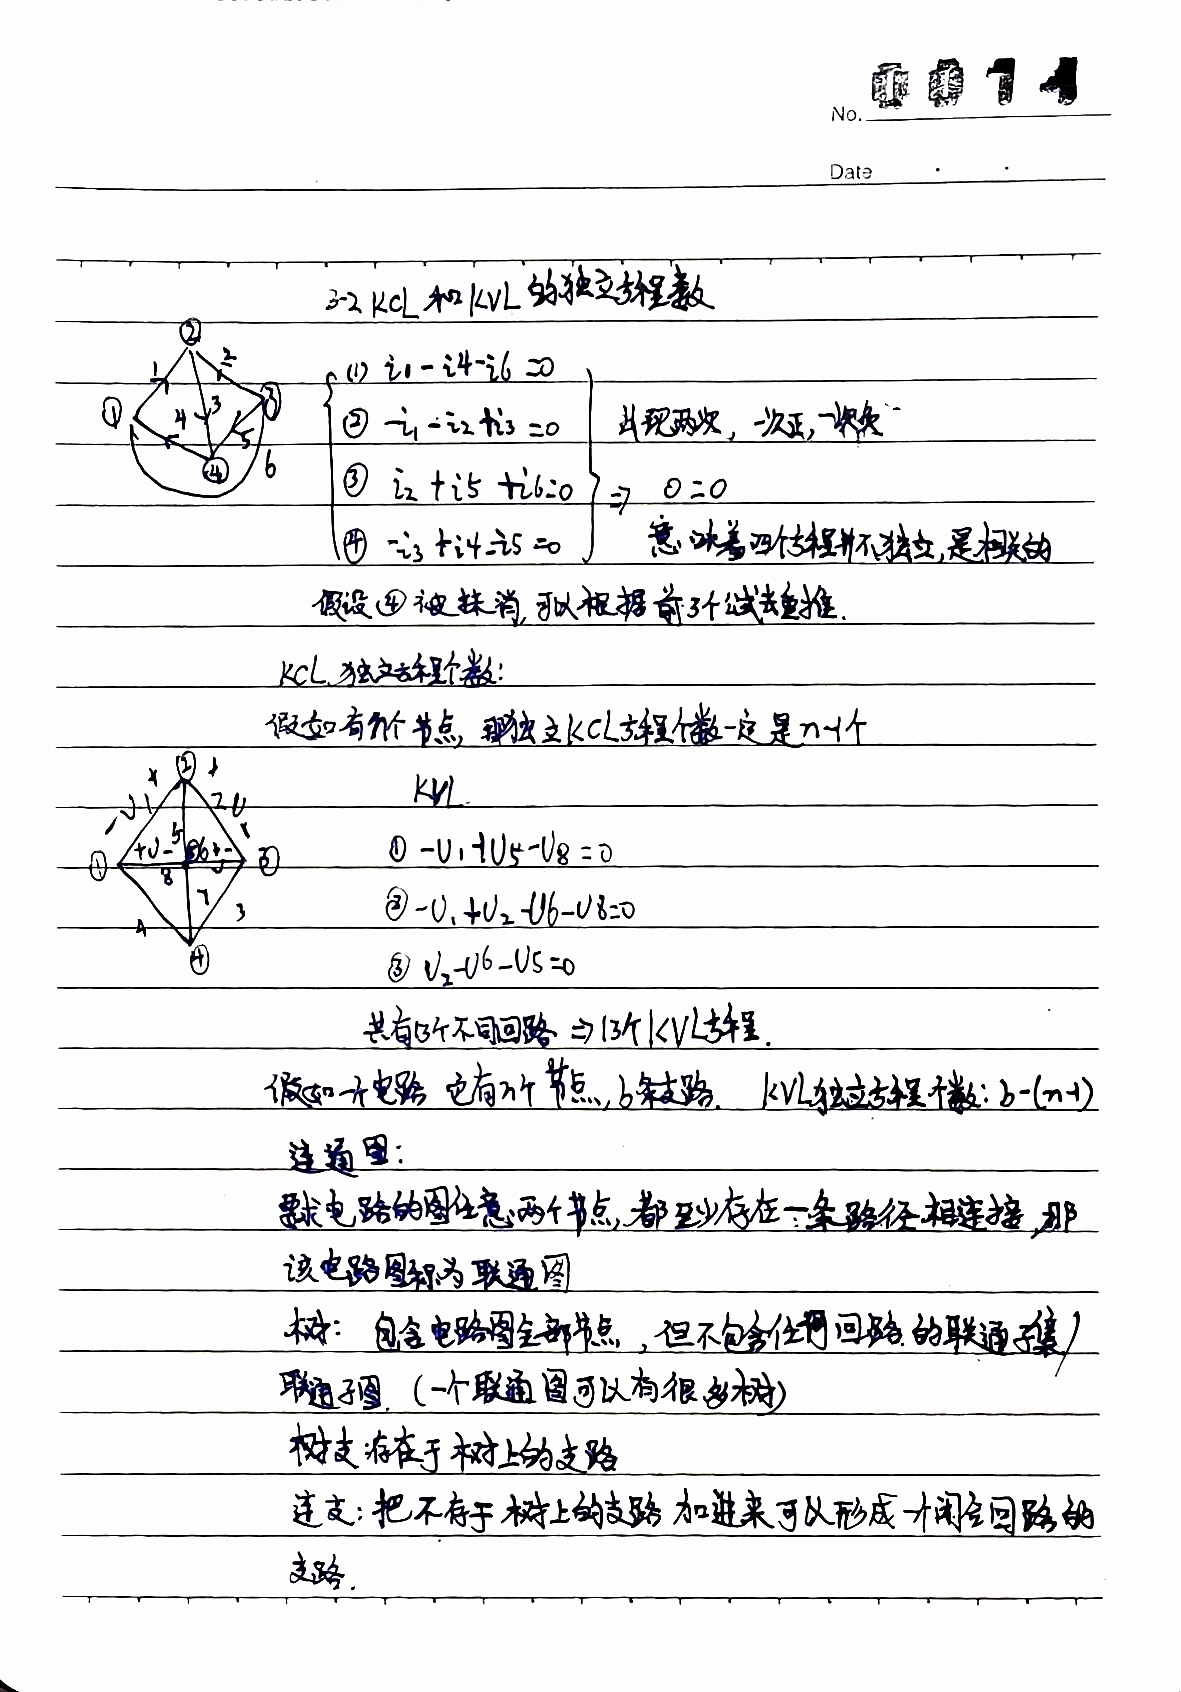 0014
No.
Date
3-2 KCL和KVL的独立方程数
② 1 2 ① 4 3 ③ 5 ④ 6
(1) i₁-i4-i6=0
② -i₁-i₂+i3=0 出现两次，一次正，一次负
③ i₂+i5+i6=0 ⇒ 0=0
④ -i3+i4-i5=0 意味着四个方程并不独立，是相关的
假设④被抹消，可以根据前3个公式去重推.
KCL独立方程个数：
假如有n个节点，那独立KCL方程个数一定是n-1个
KVL
② + + - U 1 2 U - ① +U- 5 6 + - U ③ 8 7 4 3 ④
① -U₁+U5-U8=0
② -U₁+U₂-U6-U8=0
③ U₂-U6-U5=0
共有13个不同回路 ⇒ 13个KVL方程.
假如一个电路 它有n个节点，b条支路. KVL独立方程个数：b-(n-1)
连通图：
要求电路的图任意两个节点，都至少存在一条路径相连接，那
该电路图称为联通图
树： 包含电路图全部节点，但不包含任何回路的联通子集/
联通子图 (一个联通图可以有很多树)
树支：存在于树上的支路
连支：把不存于树上的支路加进来可以形成一个闭合回路的
支路.